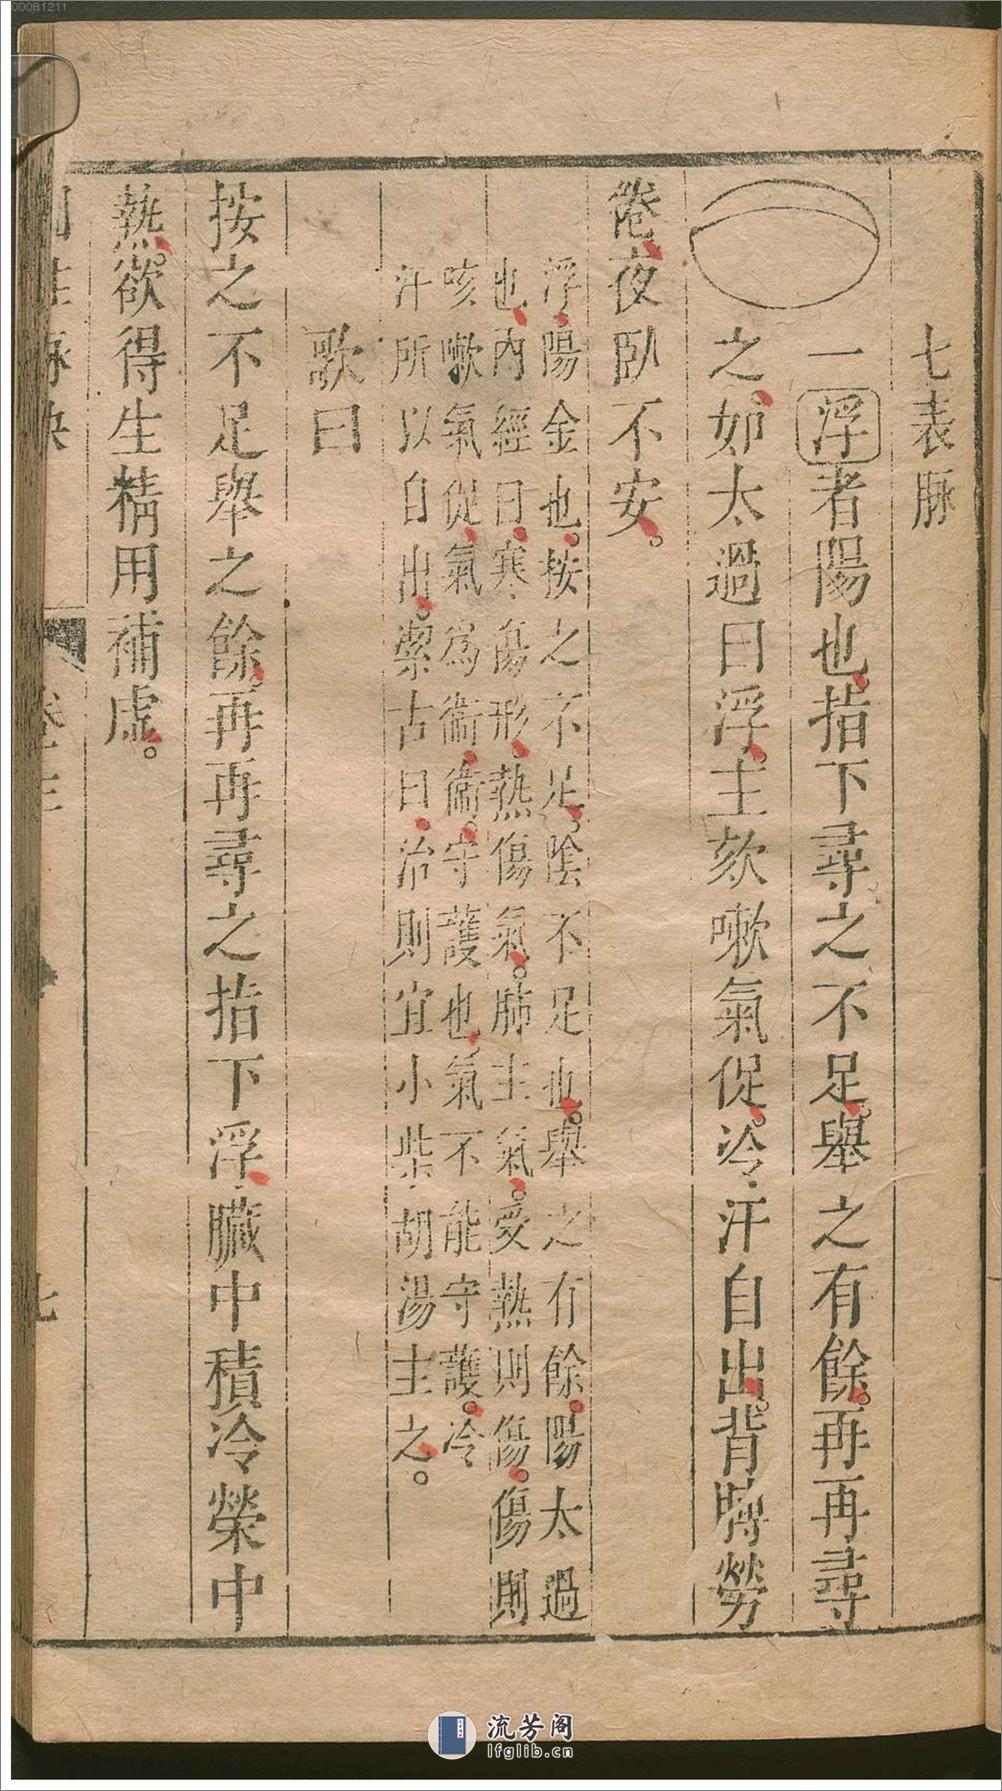 七表脉
一浮者陽也指下尋之不足。舉之有餘。再再尋
之如太過曰浮。主欬嗽氣促。冷汗自出。背膊勞
倦夜臥不安。
浮陽金也。按之不足。陰不足也。舉之有餘。陽太過
也內經曰。寒傷形。熱傷氣。肺主氣。受熱則傷。傷則
咳嗽氣促。氣為衞。衞守護也。氣不能守護。冷
汗所以自出。潔古曰。治則宜小柴胡湯主之。
歌曰
按之不足舉之餘。再再尋之指下浮臟中積冷榮中
熱。欲得生精用補虛。
七
00081211
流芳阁
lfglib.cn